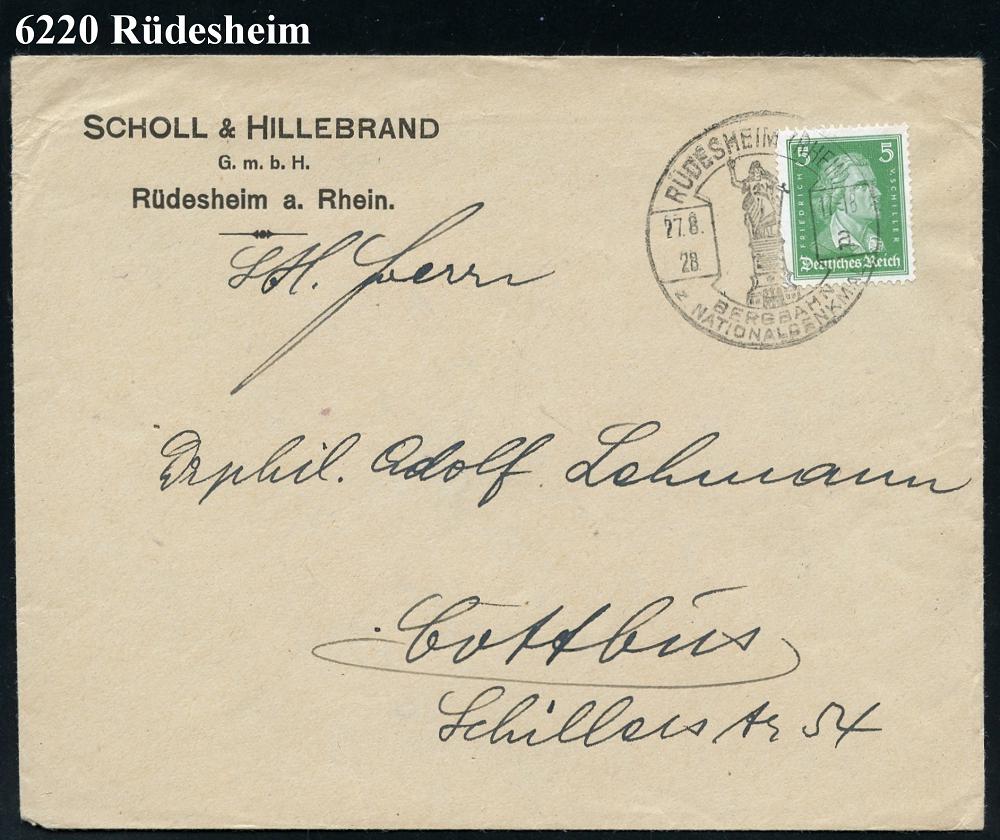 6220 Rüdesheim
SCHOLL & HILLEBRAND
G. m. b. H.
Rüdesheim a. Rhein.
RÜDESHEIM (RHEIN)
27.8.
28
BERGBAHN
z. NATIONALDENKMAL
5 5
FRIEDRICH V. SCHILLER
Deutsches Reich
Herrn
Dr phil. Adolf Lehmann
Cottbus
Schillerstr 54